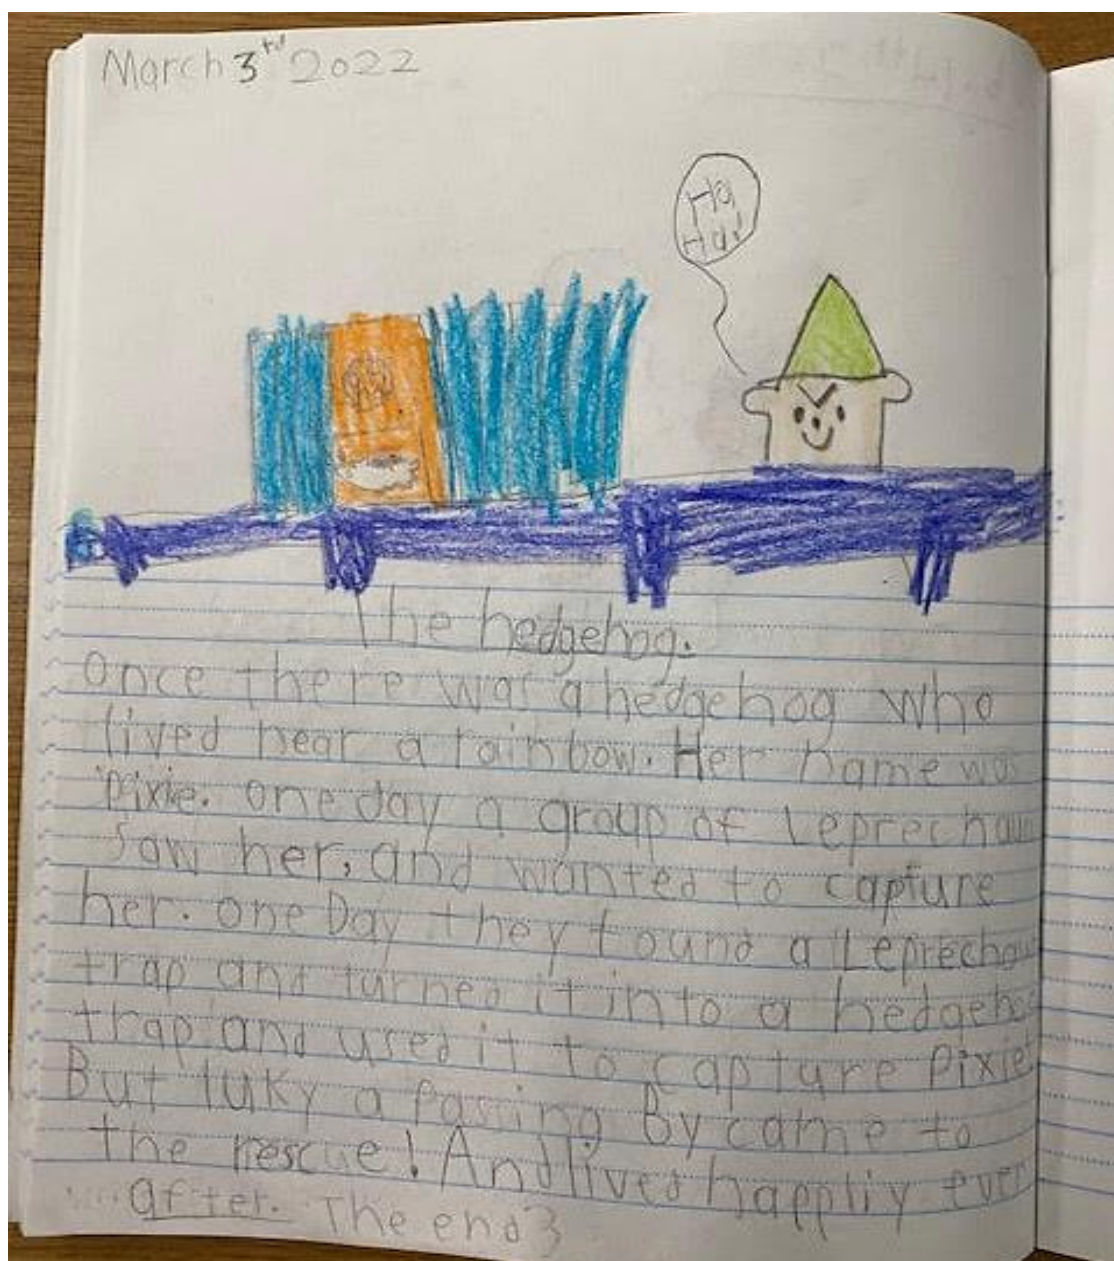 March 3rd 2022
Ha
Ha!
The hedgehog.
Once there was a hedgehog who
lived near a rainbow. Her name was
Pixie. one day a group of Leprechaun
saw her, and wanted to capture
her. one Day they found a Leprechau
trap and turned it into a hedgehog
trap and used it to capture Pixie!
But luky a passing By came to
the rescue! And lived happliy ever
after. The end